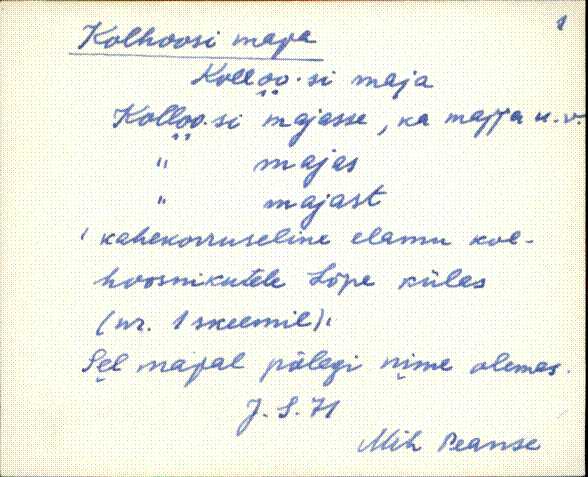 1
Kolhoosi maja
Kolloo·si maja
Kolloo·si majasse, ka majja u.v.
" majas
" majast
' kahekorruseline elamu kol-
hoosnikutele Lõpe külas
(nr. 1 skeemil)'
Sel majal põlegi nime olemas.
J. S. 71
Mih